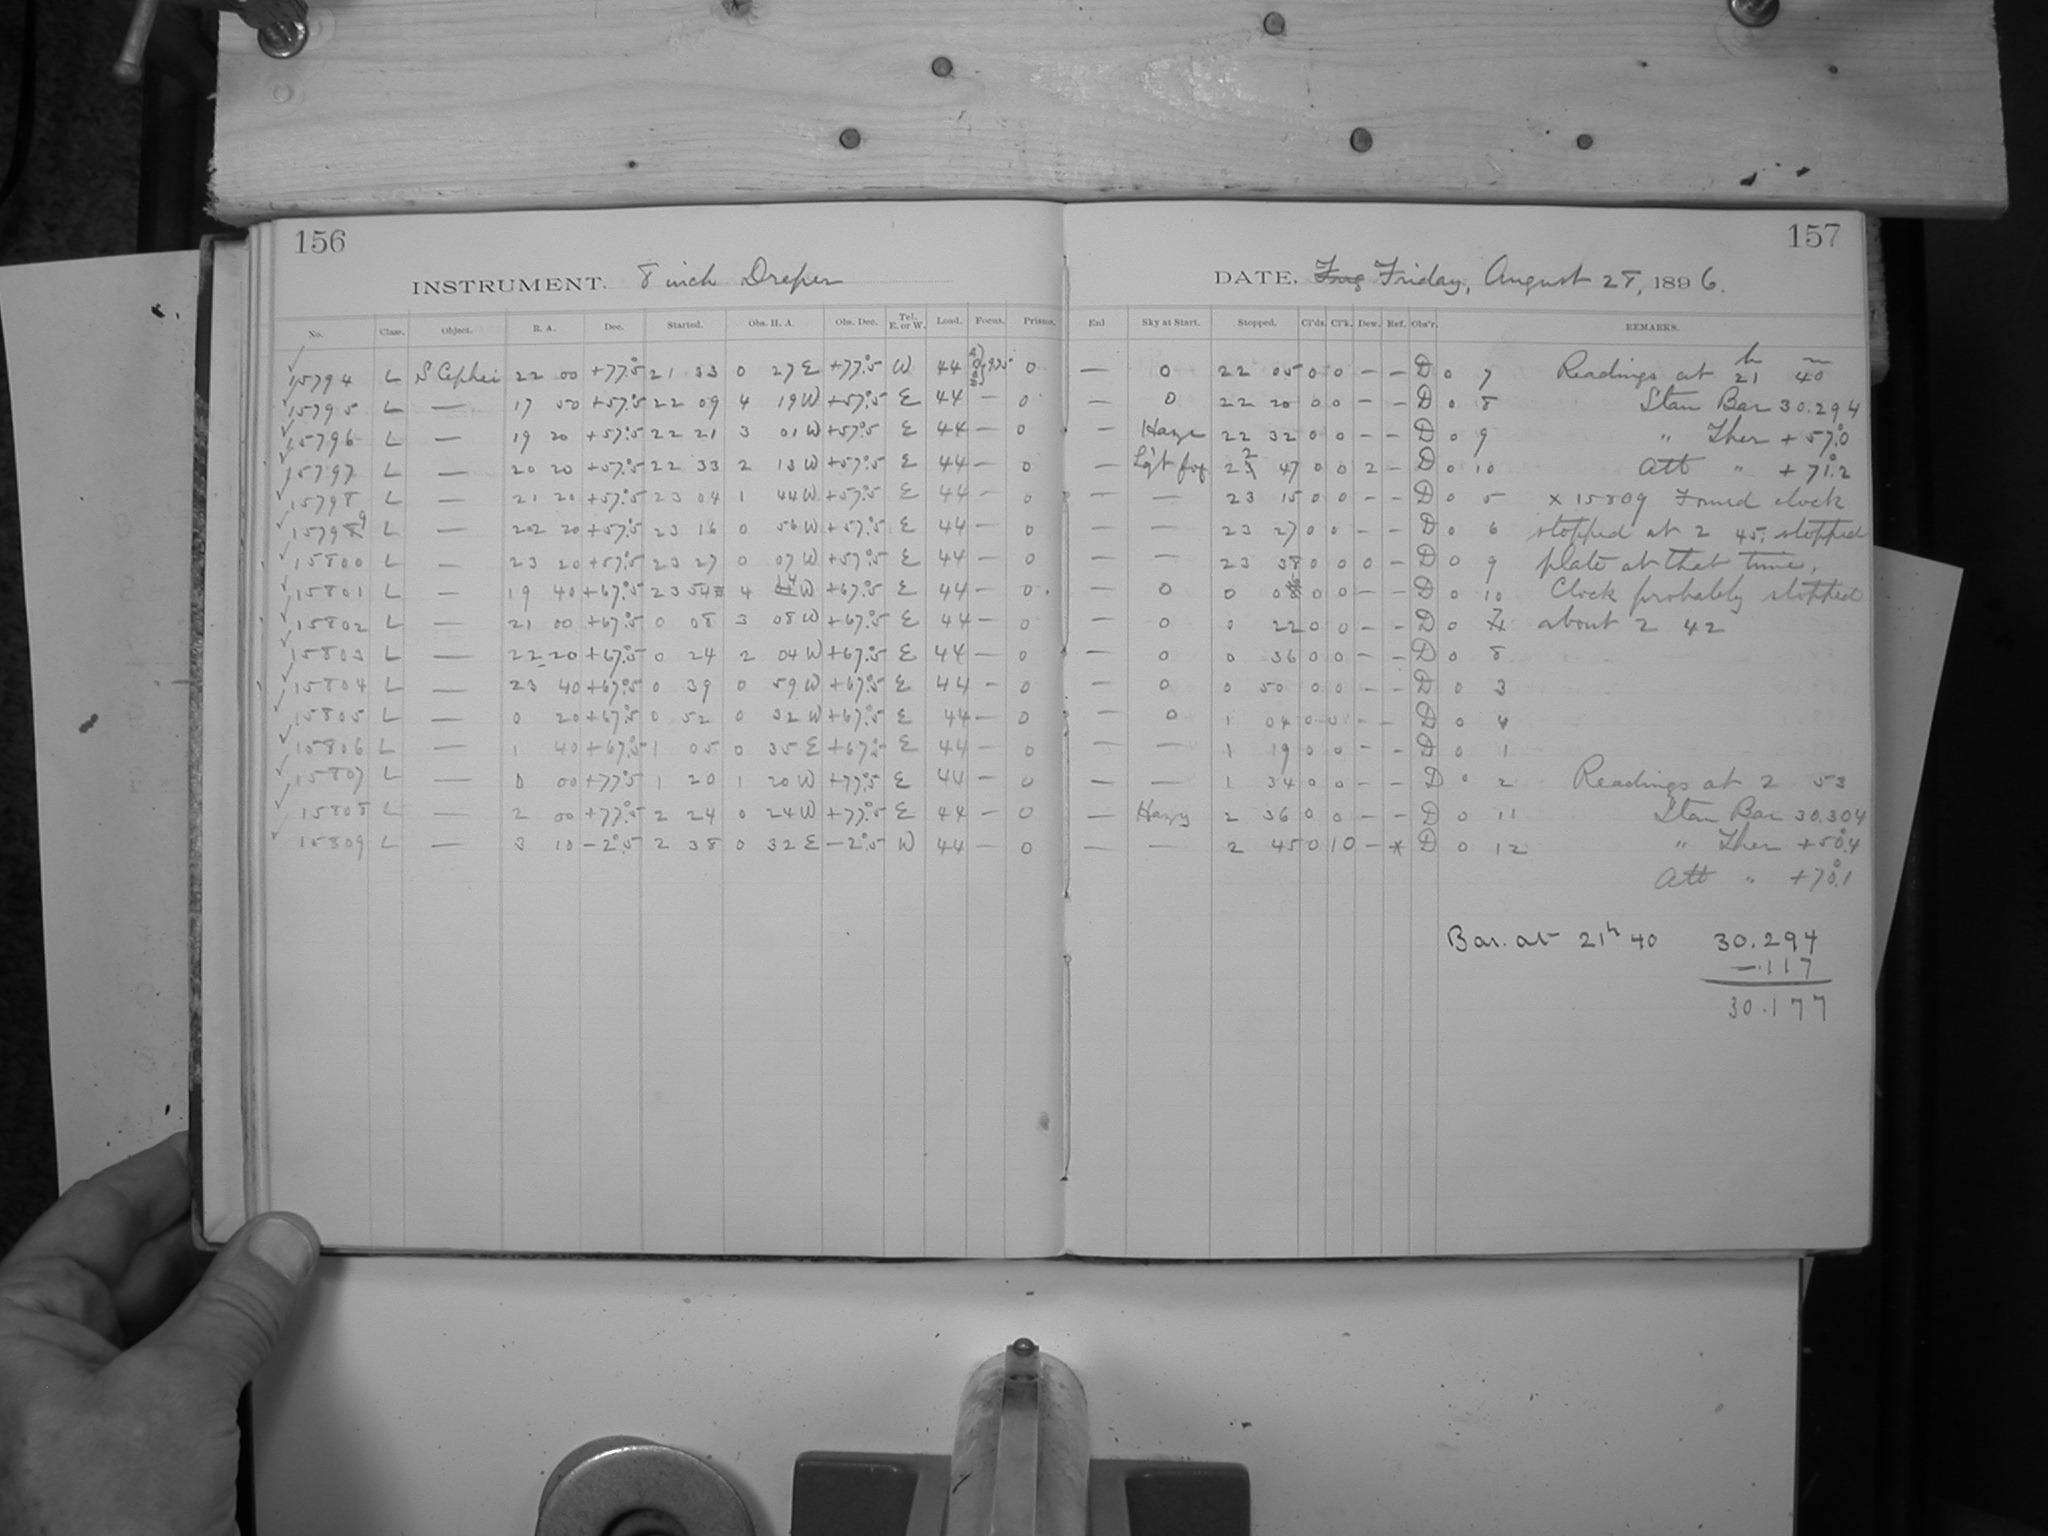 156
157
INSTRUMENT. 8 inch Draper
DATE. Friday, August 28, 1896.
No. Class. Object. R. A. Dec. Started. Obs. H. A. Obs. Dec. Tel. E. or W. Load. Focus. Prisms. Enl Sky at Start. Stopped. Cl'ds. Cl'k. Dew. Ref. Obs'r. REMARKS.
15794 L S Cephei 22 00 +77°.5 21 33 0 27 E +77°.5 W 44 0 — 0 22 05 0 0 – – D 0 7 Readings at 21h 40m
15795 L — 17 50 +57°.5 22 09 4 19 W +57°.5 E 44 – 0 — 0 22 20 0 0 – – D 0 8 Stan Bar 30.294
15796 L — 19 20 +57°.5 22 21 3 01 W +57°.5 E 44 – 0 – Haze 22 32 0 0 – – D 0 9 " Ther +57°.0
15797 L — 20 20 +57°.5 22 33 2 13 W +57°.5 E 44 – 0 – Lg't fog 22 47 0 0 2 – D 0 10 Att " +71°.2
15798 L — 21 20 +57°.5 23 04 1 44 W +57°.5 E 44 – 0 — — 23 15 0 0 – – D 0 5 x 15809 Found clock
15799 L — 22 20 +57°.5 23 16 0 56 W +57°.5 E 44 – 0 — — 23 27 0 0 – – D 0 6 stopped at 2 45; stopped
15800 L — 23 20 +57°.5 23 27 0 07 W +57°.5 E 44 – 0 — — 23 38 0 0 0 – D 0 9 plate at that time.
15801 L — 19 40 +67°.5 23 54 4 14 W +67°.5 E 44 – 0 — 0 0 0 0 0 – – D 0 10 Clock probably stopped
15802 L — 21 00 +67°.5 0 08 3 08 W +67°.5 E 44 – 0 — 0 0 22 0 0 – – D 0 7 about 2 42
15803 L — 22 20 +67°.5 0 24 2 04 W +67°.5 E 44 – 0 — 0 0 36 0 0 – – D 0 8
15804 L — 23 40 +67°.5 0 39 0 59 W +67°.5 E 44 – 0 — 0 0 50 0 0 – – D 0 3
15805 L — 0 20 +67°.5 0 52 0 32 W +67°.5 E 44 – 0 — 0 1 04 0 0 – – D 0 4
15806 L — 1 40 +67°.5 1 05 0 35 E +67°.5 E 44 – 0 — — 1 19 0 0 – – D 0 1
15807 L — 0 00 +77°.5 1 20 1 20 W +77°.5 E 44 – 0 — — 1 34 0 0 – – D 0 2 Readings at 2 53
15808 L — 2 00 +77°.5 2 24 0 24 W +77°.5 E 44 – 0 — Hazy 2 36 0 0 – – D 0 11 Stan Bar 30.304
15809 L — 3 10 –2°.5 2 38 0 32 E –2°.5 W 44 – 0 — — 2 45 0 10 – * D 0 12 " Ther +50°.4
Att " +70°.1
Bar. at 21h 40 30.294
–.117
30.177